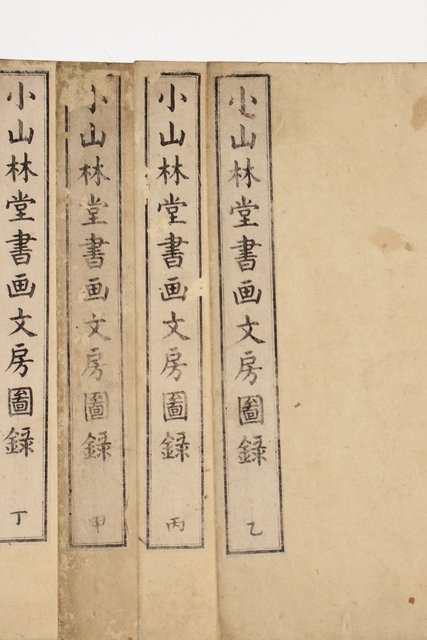 小山林堂書画文房圖録 乙
小山林堂書画文房圖録 丙
小山林堂書画文房圖録 甲
小山林堂書画文房圖録 丁